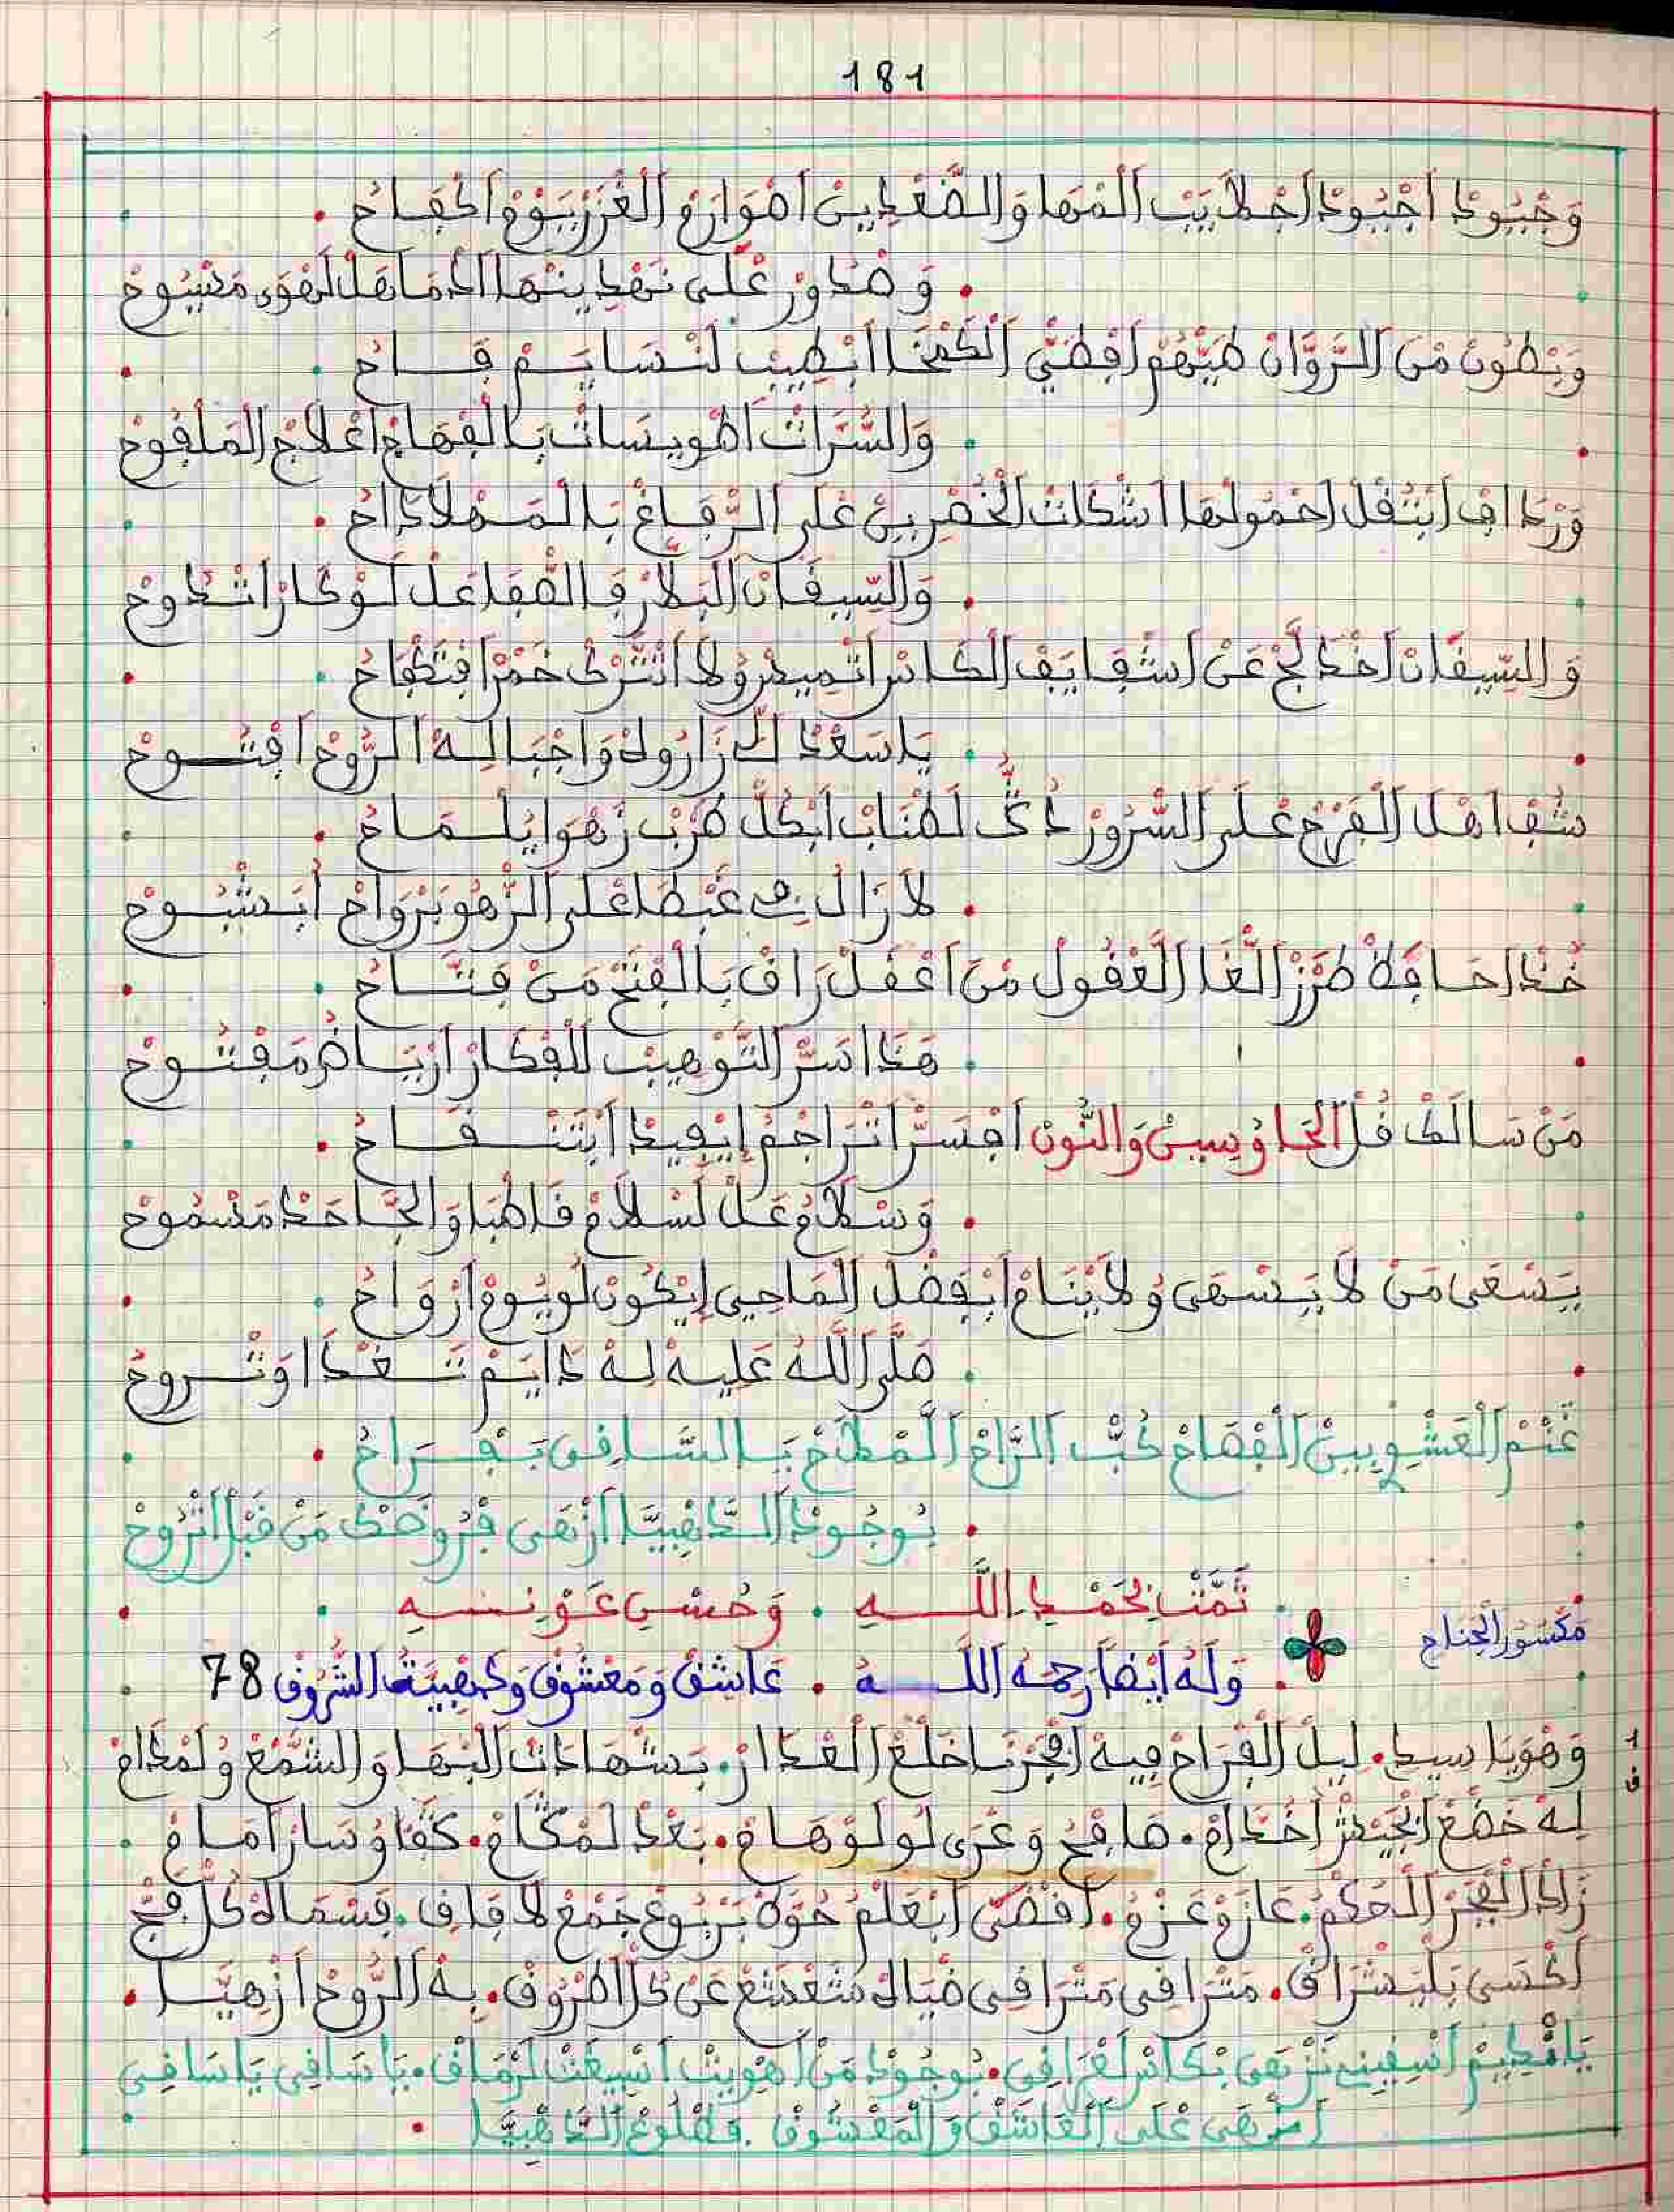 181
وَجْيُودْ اجْيُودْ اجْلَايَبْ المْهَا وَالصَّعْدِينْ اصْوَارَمْ العَزّ يَوْمْ الكْفَاحْ
وَصْدَوَرْ عْلَى نَهْدِينْهَا ادْمَا هَلْ لَهْوَى مَسْيُوحْ
وَبْطُونْ مْنَ الرَّوَّانْ طَيّْهُمْ افْطَيّْ الكَمْخَا ابْطِيبْ لَنْسَايَمْ فَاحْ
وَالسُّرَاتْ اطْوِيسَاتْ بَالقْمَاجْ اعْلَاجْ المَلْفُوحْ
وَرْدَافْ ابْثُقْلْ احْمُولْهَا اشْكَاتْ الخْصْرِينْ عْلَى الرّْفَاغْ بَالمَهْلَا دَاحْ
وَالسِّيقَانْ البَلَّارْ فَالصّْفَا عَلْ لَوْكَارْ اتْدُوحْ
وَالسِّيقَانْ اخْدَلَّجْ عَنْ اشْقَايَقْ الكَاسْ اتْمِيدْ وُلَا اتْتَرْكْ خَمْرْ افْتَكْفَاحْ
يَا سَعْدْ الّْ زَارُوهْ وَاجْبَا لِهْ الرُّوحْ افْتُوحْ
شُفْ اهْلْ الفَرْحْ عْلَى السُّرُورْ دُقّْ لَطْنَابْ ابْكُلّْ طَرْبْ زَهْوَا يُلْمَاحْ
لَا زَالْ فِي غَبْطَا عْلَى الزّْهُو بَرْوَاحْ ابَشْبُوحْ
خُدْ احَافَظْ طَرْزْ الغَا العْقُولْ مْنَ اعْقَلْ رَاقْ بَالفَتْحْ مَنْ فَتَّاحْ
هَدَا سَرّْ التَّوْهِيبْ لَلفْكَارْ ارْيَاضُ مَفْتُوحْ
مَنْ سَالَكْ قُلّ الحَا وُسِينْ وَالنُّونْ افْسَرّْ اتْرَاجْمُ إيْفِيدْ ابْتَنْقَاحْ
وَسْلَامُ عَلْ لَسْلَامْ قَاطْبَا وَالجَّاحَدْ مَسْمُوحْ
يَسْعَى مَنْ لَا يَسْهَى وُلَا يْنَامْ ابْفَضْلْ المَاحِي إيْكُونْ لُو يُومْ ارْوَاحُ
صَلَّى اللَّهُ عَلِيهْ لِهْ دَايَمْ تَغْدَا وَتْرُوحُ
غْنَمْ العَشْوِيينْ الفْصَاحْ كُبّْ الرَّاحْ المْطَلَّاحْ يَالسَّاقِي بَفْرَاحُ
بُوجُودْ الدَّاهْبِيَّا ازْهَى فْرُوضَكْ مَنْ قَبْلْ اتْرُوحْ
ثَمَّتْ بِحَمْدِ اللَّهِ . وَحُسْنِ عَوْنِهِ
مَكْسُورُ الجَنَاحِ
وَلَهُ أَيْضاً رَحِمَهُ اللَّهُ . عَاشَقْ وَمَعْشُوقْ وَدْهِيبِيَّةُ الشُّرُوقْ 78
وَهْوَ يَا سِيدِ . لِيلْ الفْرَاحْ فِيهْ الفْجَرْ نَا خْلَعْ العْدَارْ . بَشْهَادَاتْ البْهَا وَالشّْمَعْ وُلَمْدَامْ
1
ف
لِهْ خَضْعْ الجَيْشْ اخْدَامْ . صَافَحْ وَعْرَى لُولُو هَامْ . بَعْدْ لَمْكَامْ . كَفَّاوُ سَارْ امَامْ
زَادْ الفْجَرْ الحَكْمُ . عَازَمْ عَزْمُ . افْضَى ابْعَلْمُ حَوْلْ يَرْبُوعْ جَمْعْ لَافَاقْ . فَسْمَاهْ كُلّْ فَجّْ
اكْسَى يَلْيَشْرَاقْ . مَتْرَاقِي مَتْرَاقِي ضْيَاهْ مْشَعْشَعْ عَنْ كُلّْ اطْرُوقْ . بِهْ الرُّوحْ ازْهِيَّا .
يَانْدِيمْ اسْقِينِي نَزْهَى بْكَاسْ لَعْرَاقِي . بُوجُودْ مَنْ اهْوِيتْ اسْبِيغَتْ لَرْمَاقْ . يَا سَاقِي يَا سَاقِي
ازْهَى عْلَى العَاشَقْ وَالمَعْشُوقْ . فَطْلُوعْ الدَّاهْبِيَّا